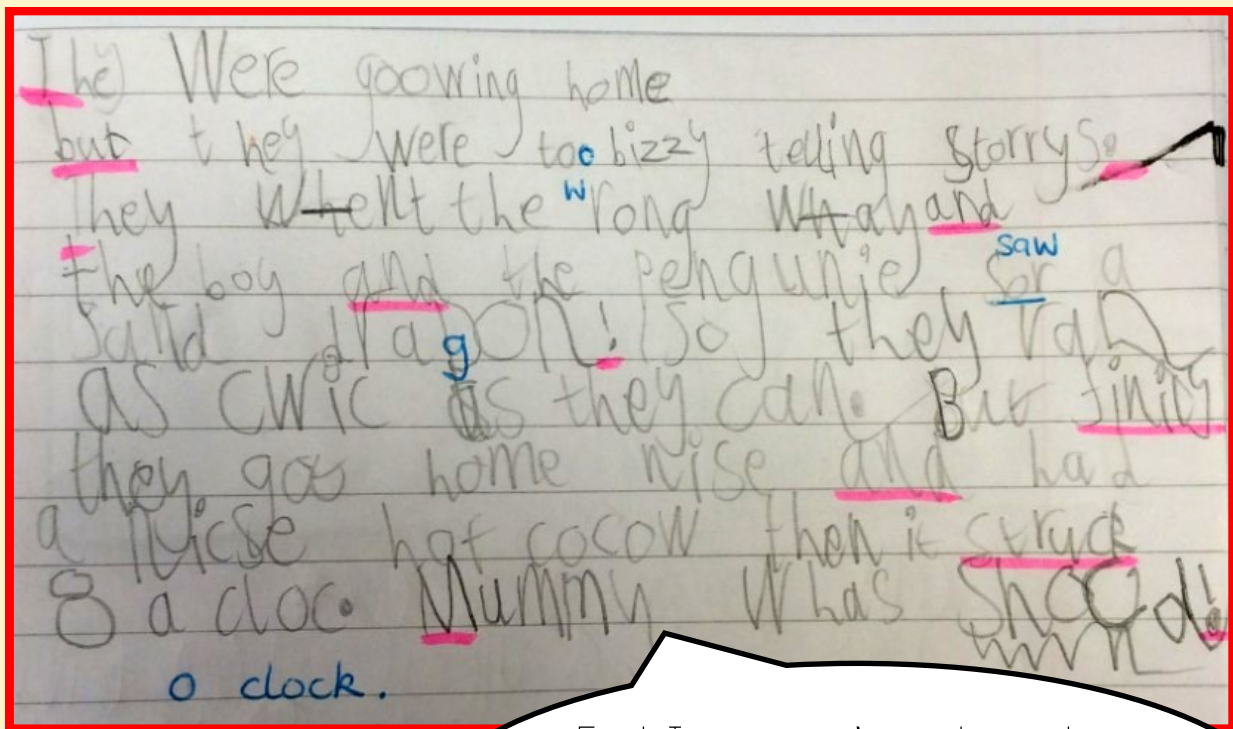 They Were goowing home
but they were too bizzy telling storrys.
They Whent the wrong Whay and
saw
the boy and the pengunie sor a
sand dragon! so they ran
as cwic as they can. But finily
they got home nise and had
a nicse hot cocow then it struck
8 a cloc. Mummy Whas Shocd!
o clock.